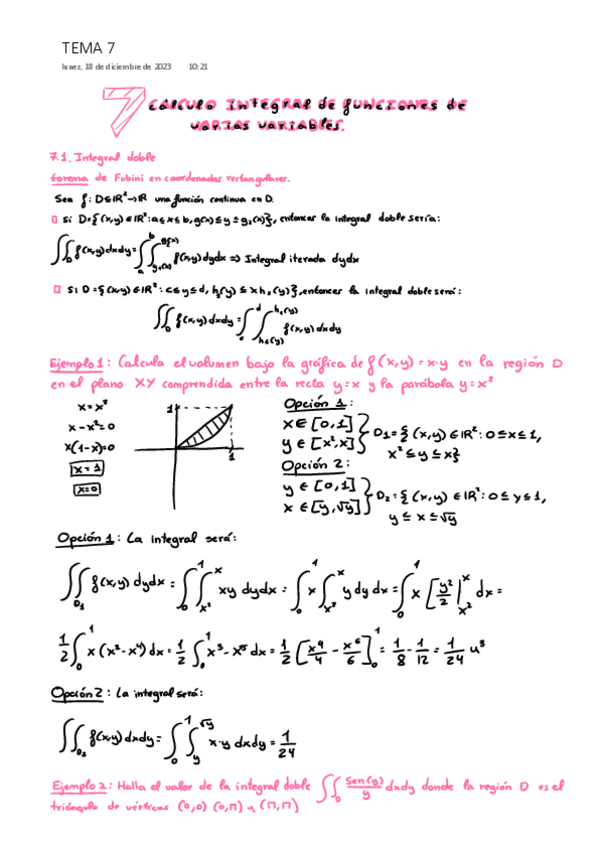 TEMA 7
lunes, 18 de diciembre de 2023 10:21
7 CÁLCULO INTEGRAL DE FUNCIONES DE
VARIAS VARIABLES.
7.1. Integral doble
teorema de Fubini en coordenadas rectangulares.
Sea f: D⊆ℝ²→ℝ una función continua en D.
□ Si D={(x,y)∈ℝ²: a≤x≤b, g(x)≤y≤g₂(x)}, entonces la integral doble sería:
∬_D f(x,y)dxdy = ∫_a^b ∫_{g₁(x)}^{g₂(x)} f(x,y)dydx => Integral iterada dydx
□ Si D={(x,y)∈ℝ²: c≤y≤d, h₁(y)≤x h₂(y)}, entonces la integral doble será:
∬_D f(x,y)dxdy = ∫_c^d ∫_{h₁(y)}^{h₂(y)} f(x,y)dxdy
Ejemplo 1: Calcula el volumen bajo la gráfica de f(x,y)=x·y en la región D
en el plano XY comprendida entre la recta y=x y la parábola y=x²
x=x²
x-x²=0
x(1-x)=0
x=1
x=0
1
1
Opción 1:
x∈[0,1]
y∈[x²,x]
D₁={(x,y)∈ℝ²: 0≤x≤1,
x²≤y≤x}
Opción 2:
y∈[0,1]
x∈[y,√y]
D₂={(x,y)∈ℝ²: 0≤y≤1,
y≤x≤√y
Opción 1: La integral será:
∬_{D₁} f(x,y)dydx = ∫_0^1 ∫_{x²}^x xy dydx = ∫_0^1 x ∫_{x²}^x y dy dx = ∫_0^1 x [y²/2 |_{x²}^x dx =
1/2 ∫_0^1 x(x²-x⁴)dx = 1/2 ∫_0^1 x³-x⁵ dx = 1/2 [x⁴/4 - x⁶/6]_0^1 = 1/8 - 1/12 = 1/24 u³
Opción 2: La integral será:
∬_{D₂} f(x,y)dxdy = ∫_0^1 ∫_y^{√y} x·y dxdy = 1/24
Ejemplo 2: Halla el valor de la integral doble ∬_D sen(y)/y dxdy donde la región D es el
triángulo de vértices (0,0) (0,π) y (π,π)